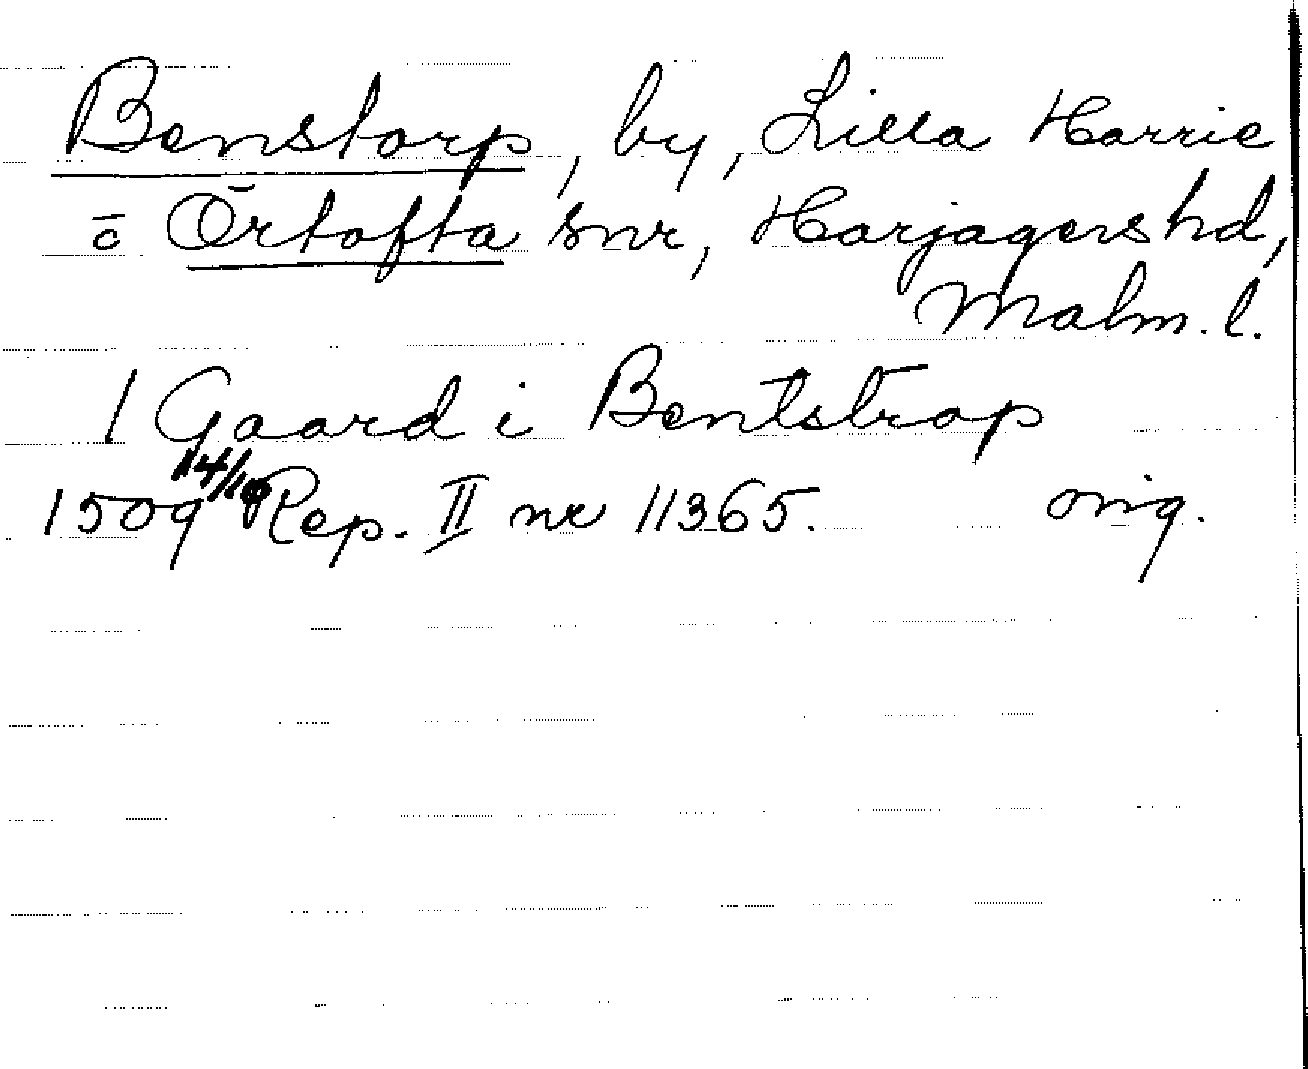 Benstorp, by, Lilla Harrie
o Örtofta snr, Harjagers hd,
Malm. l.
1 Gaard i Bentstrap
1509 14/10 Rep. II nr 11365. orig.